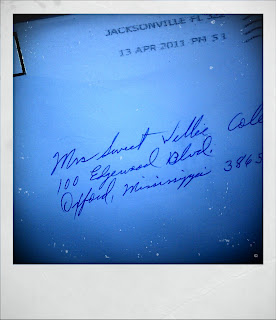 JACKSONVILLE FL
13 APR 2011 PM
Mrs Sweet Willie Cole
100 Edgewood Blvd.
Oxford, Mississippi 3865